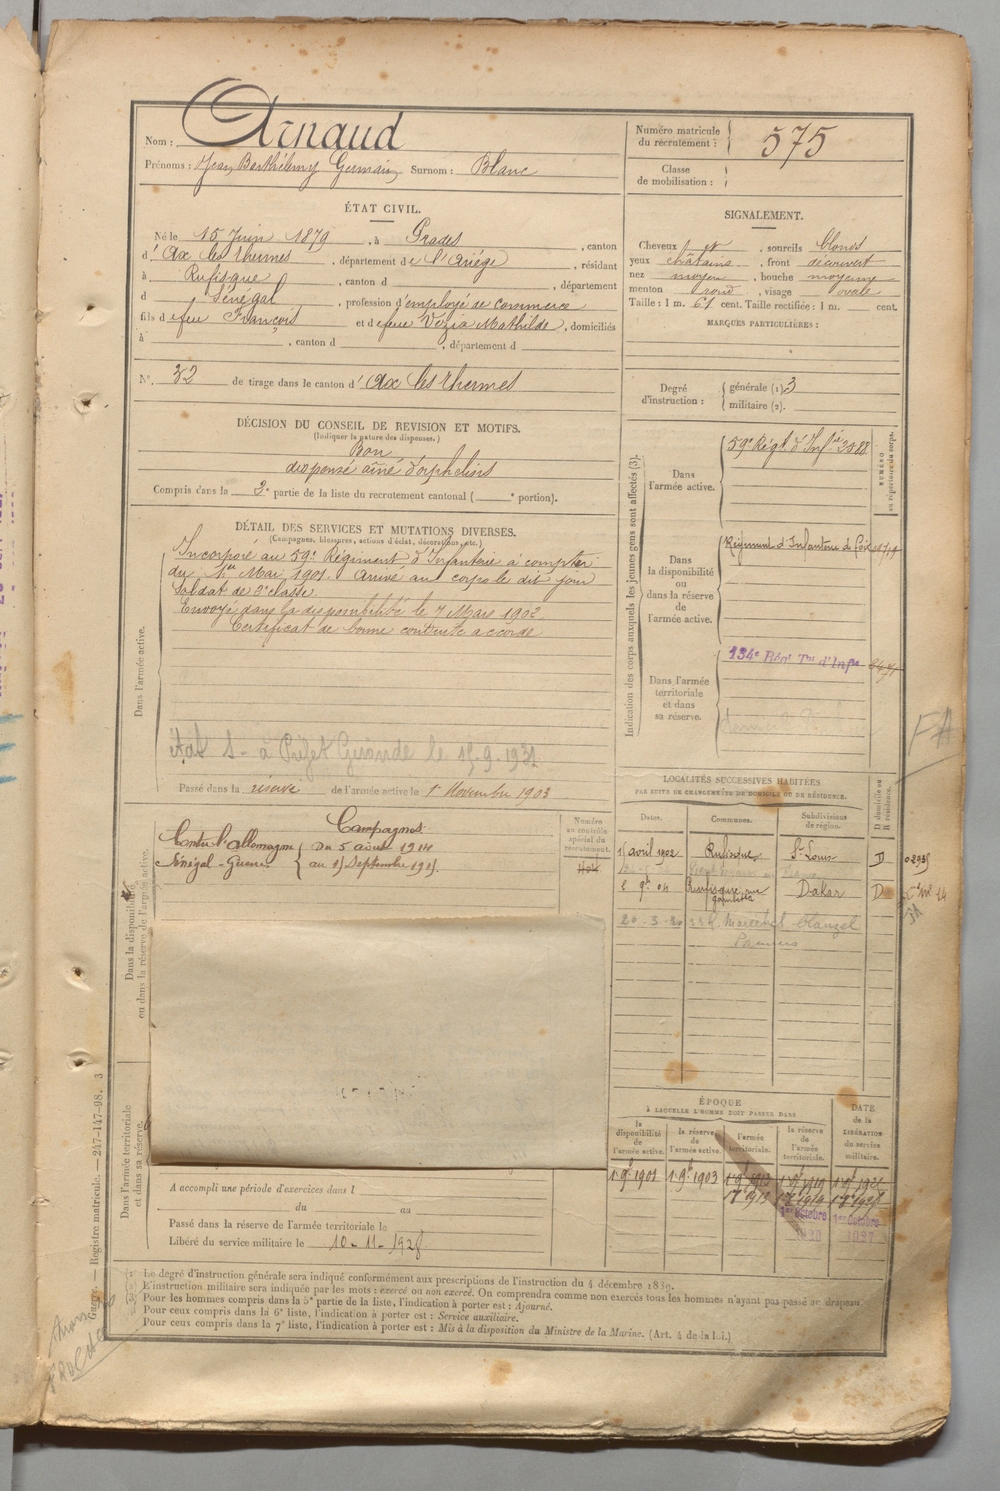 Nom : Arnaud
Prénoms : Jean Barthélemy Germain Surnom : Blanc
Numéro matricule du recrutement : 575
Classe de mobilisation :
ÉTAT CIVIL.
Né le 15 Juin 1879, à Prades, canton
d'Ax les thermes, département de l'Ariège, résidant
à Rufisque, canton d, département
d Sénégal, profession d'employé de commerce
fils de feu François et de feue Vezia Mathilde, domiciliés
à, canton d, département d
N°. 32 de tirage dans le canton d'Ax les thermes
SIGNALEMENT.
Cheveux et, sourcils blonds
yeux châtains, front découvert
nez moyen, bouche moyenne
menton rond, visage ovale
Taille : 1 m. 61 cent. Taille rectifiée : 1 m. cent.
MARQUES PARTICULIÈRES :
Degré d'instruction : générale (1) 3
militaire (2).
DÉCISION DU CONSEIL DE REVISION ET MOTIFS.
(Indiquer la nature des dispenses.)
Bon
dispensé aîné d'orphelins
Compris dans la 2e partie de la liste du recrutement cantonal ( e portion).
DÉTAIL DES SERVICES ET MUTATIONS DIVERSES.
(Campagnes, blessures, actions d'éclat, décorations, etc.)
Dans l'armée active.
Incorporé au 59e Régiment d'Infanterie à compter
du 1er Mai 1901. Arrivé au corps le dit jour
Soldat de 2e classe.
Envoyé dans la disponibilité le 7 Mars 1902
Certificat de bonne conduite accordé
à Préfet Gironde le 15-9-1931
Passé dans la réserve de l'armée active le 1er Novembre 1903
Indication des corps auxquels les jeunes gens sont affectés (3).
NUMÉRO au répertoire du corps.
Dans l'armée active.
59e Régt d'Infie 3588
Dans la disponibilité ou dans la réserve de l'armée active.
Régiment d'Infanterie de Foix
Dans l'armée territoriale et dans sa réserve.
134e Régt Tal d'Infie
Dans la disponibilité ou dans la réserve de l'armée active.
Campagnes
Contre l'allemagne
Du 5 août 1914
Sénégal - Guerre
Numéro au contrôle spécial du recrutement.
LOCALITÉS SUCCESSIVES HABITÉES
PAR SUITE DE CHANGEMENTS DE DOMICILE OU DE RÉSIDENCE.
Dates. Communes. Subdivisions de région. D domicile ou R résidence.
avril 1902 Rufisque St-Louis D
04 Rufisque rue gambetta Dakar D
20-3-30 Marechal Clauzel
Pamiers
FA
Dans l'armée territoriale et dans sa réserve.
A accompli une période d'exercices dans l
du au
Passé dans la réserve de l'armée territoriale le
Libéré du service militaire le 10-11-1928
ÉPOQUE
À LAQUELLE L'HOMME DOIT PASSER DANS
la disponibilité de l'armée active.
la réserve de l'armée active.
l'armée territoriale.
la réserve de l'armée territoriale.
DATE de la LIBÉRATION du service militaire.
1903
1er Octobre 1er Octobre
Le degré d'instruction générale sera indiqué conformément aux prescriptions de l'instruction du 4 décembre 1889.
L'instruction militaire sera indiquée par les mots : exercé ou non exercé. On comprendra comme non exercés tous les hommes n'ayant pas passé au drapeau.
Pour les hommes compris dans la 5e partie de la liste, l'indication à porter est : Ajourné.
Pour ceux compris dans la 6e liste, l'indication à porter est : Service auxiliaire.
Pour ceux compris dans la 7e liste, l'indication à porter est : Mis à la disposition du Ministre de la Marine. (Art. 4 de la loi.)
Guerre. — Registre matricule. — 247-147-98. 3